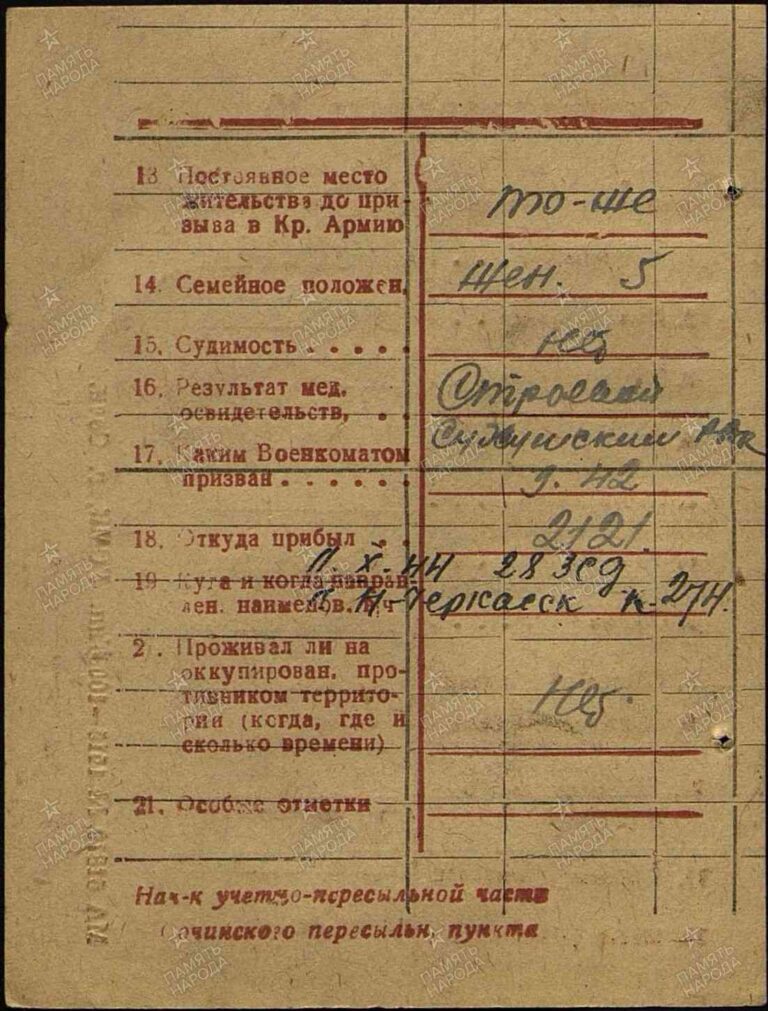 13 Постоянное место
жительства до при-
зыва в Кр. Армию
то-же
14. Семейное положен.
жен. 5
15. Судимость . . . . .
нет
16. Результат мед.
освидетельств. . .
Строевой
17. Каким Военкоматом
призван . . . . . .
Сухумским РВК
9. 42
18. Откуда прибыл . .
2121.
19 Куда и когда направ-
лен. наименов. в/ч
11. X. 44 28 зсд
г. Н-Черкасск к. 274.
2 . Проживал ли на
оккупирован. про-
тивником террито-
рии (когда, где и
сколько времени)
Нет.
21. Особые отметки
Нач-к учетно-пересыльной части
Сочинского пересыльн. пункта
ПАМЯТЬ
НАРОДА